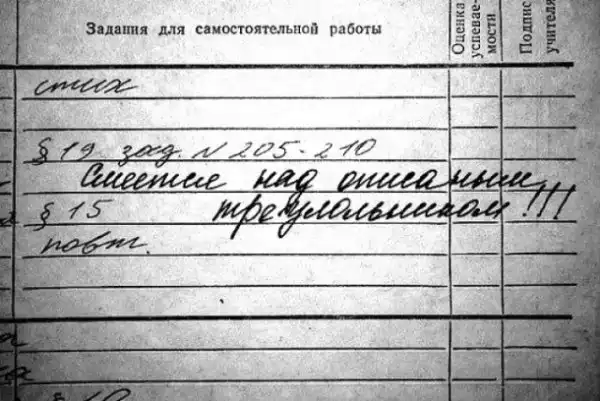 Задания для самостоятельной работы
Оценка успевае- мости
Подпис учителя
стих
§ 19 зад. N 205-210
Смеется над описаным
§ 15 треугольником!!!
повт.
§ 19